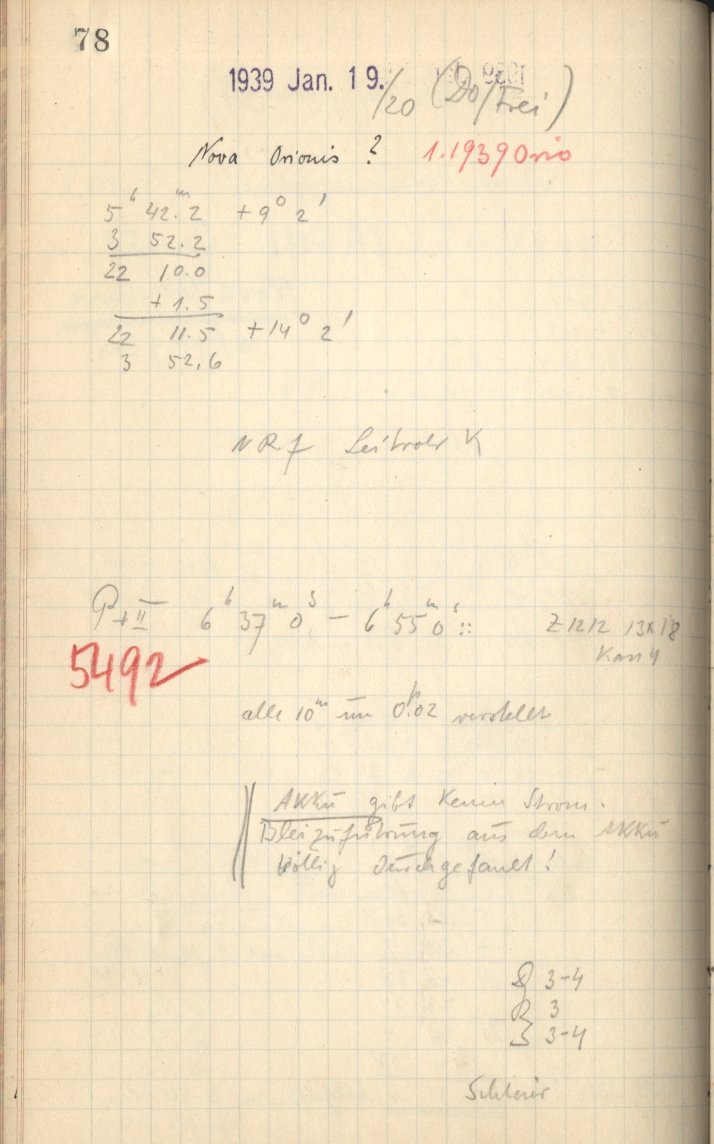 78
1939 Jan. 19./20 (Do/Frei)
Nova Orionis ? 1.1939 Orio
5ʰ 42.ᵐ2 +9° 2'
3 52.2
22 10.0
+ 1.5
22 11.5 +14° 2'
3 52,6
NR 7 Leitrohr K
P+II 6ʰ 37ᵐ 0ˢ – 6ʰ 55ᵐ 0ˢ ::
Z 1212 13x18
5492
alle 10ᵐ um 0.02 verstellt
Akku gibt keinen Strom.
Bleizuführung aus dem Akku
völlig durchgefault !
3-4
R 3
3-4
Schleier